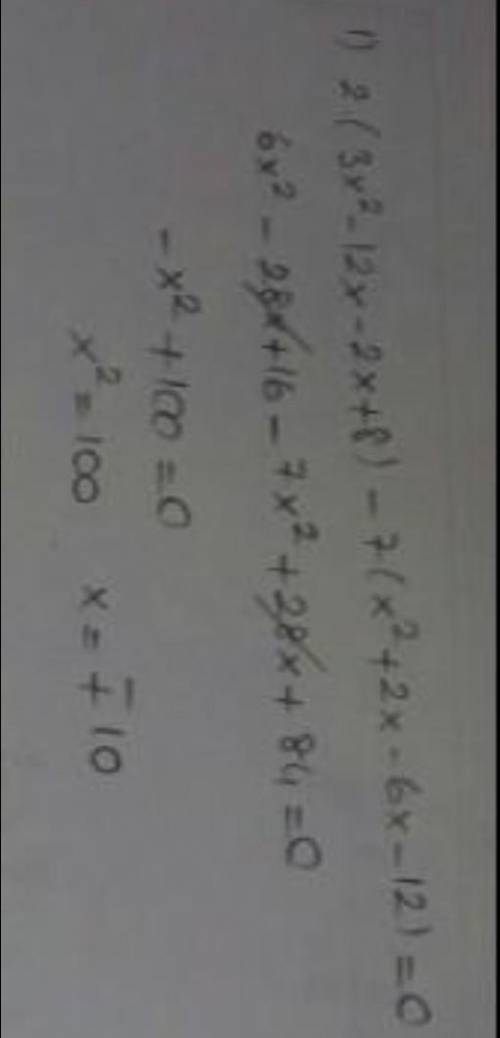 1) 2(3x² - 12x - 2x + 8) - 7(x² + 2x - 6x - 12) = 0
6x² - 28x + 16 - 7x² + 28x + 84 = 0
-x² + 100 = 0
x² = 100 x = ∓10